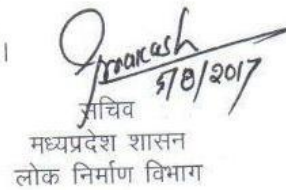 ।
5/8/2017
सचिव
मध्यप्रदेश शासन
लोक निर्माण विभाग